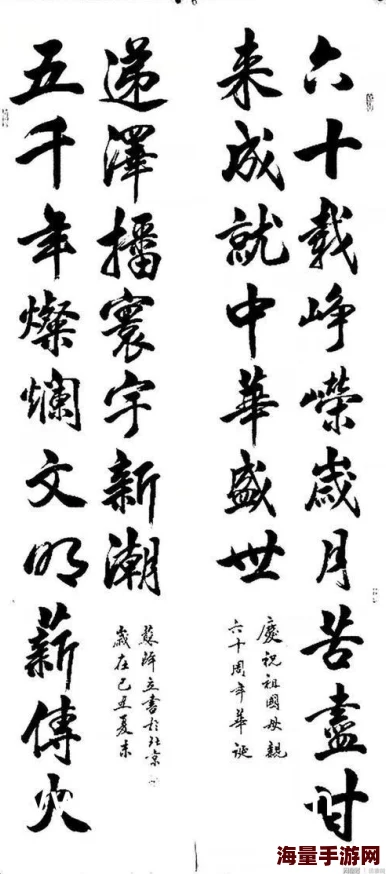 六十載崢嶸歲月苦盡甘
来成就中華盛世
慶祝祖國母親
六十周年華誕
五千年燦爛文明薪傳火
递澤播寰宇新潮
蘇立書於北京
歲在己丑夏末
海量手游网